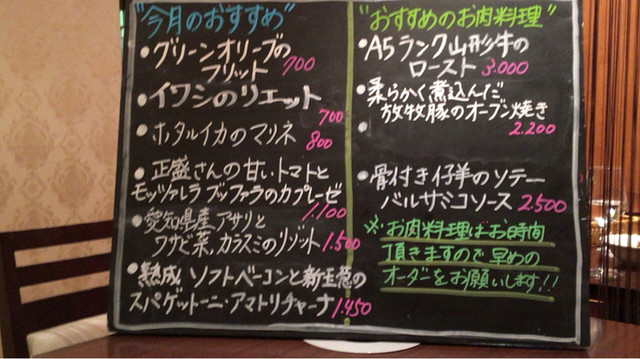 "今月のおすすめ"
•グリーンオリーブの
フリット 700
•イワシのリエット
700
•ホタルイカのマリネ
800
•正盛さんの甘いトマトと
モッツァレラブッファラのカプレーゼ
1.100
•愛知県産アサリと
ワサビ菜、カラスミのリゾット 1.500
•熟成ソフトベーコンと新玉葱の
スパゲットーニ・アマトリチャーナ 1.450
"おすすめのお肉料理"
•A5ランク山形牛の
ロースト 3.000
•柔らかく煮込んだ
放牧豚のオーブン焼き
2.200
•骨付き仔羊のソテー
バルサミコソース 2.500
※お肉料理はお時間
頂きますので早めの
オーダーをお願いします!!